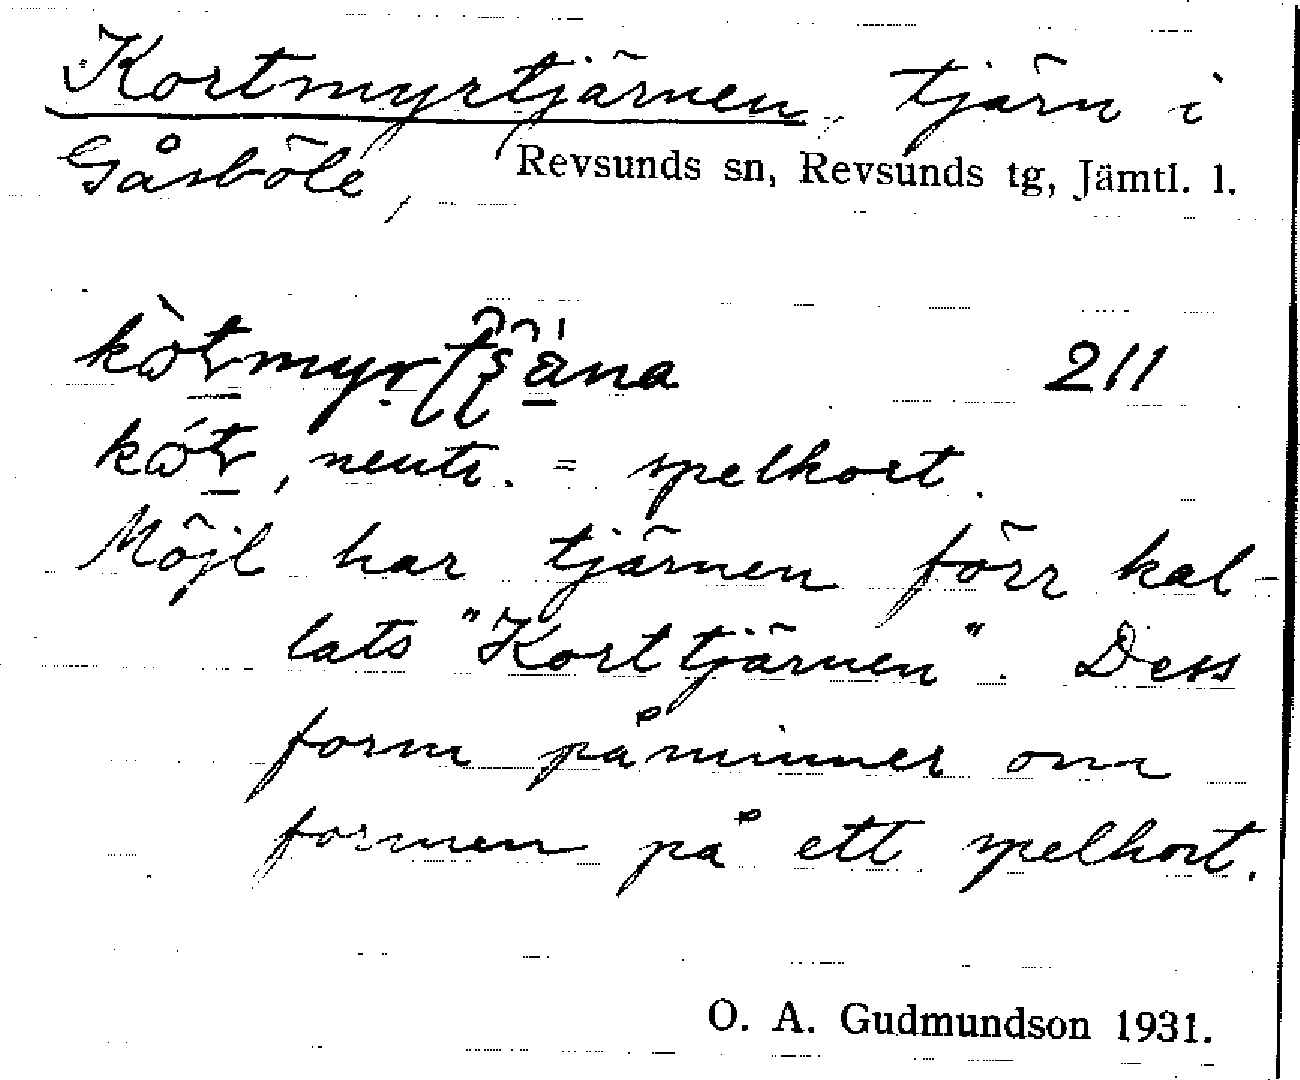 Kortmyrtjärnen, tjärn i
Gåsböle, Revsunds sn, Revsunds tg, Jämtl. l.
211
neutr. = spelkort.
Möjl har tjärnen förr kal-
lats "Korttjärnen". Dess
form påminner om
formen på ett spelkort.
O. A. Gudmundson 1931.